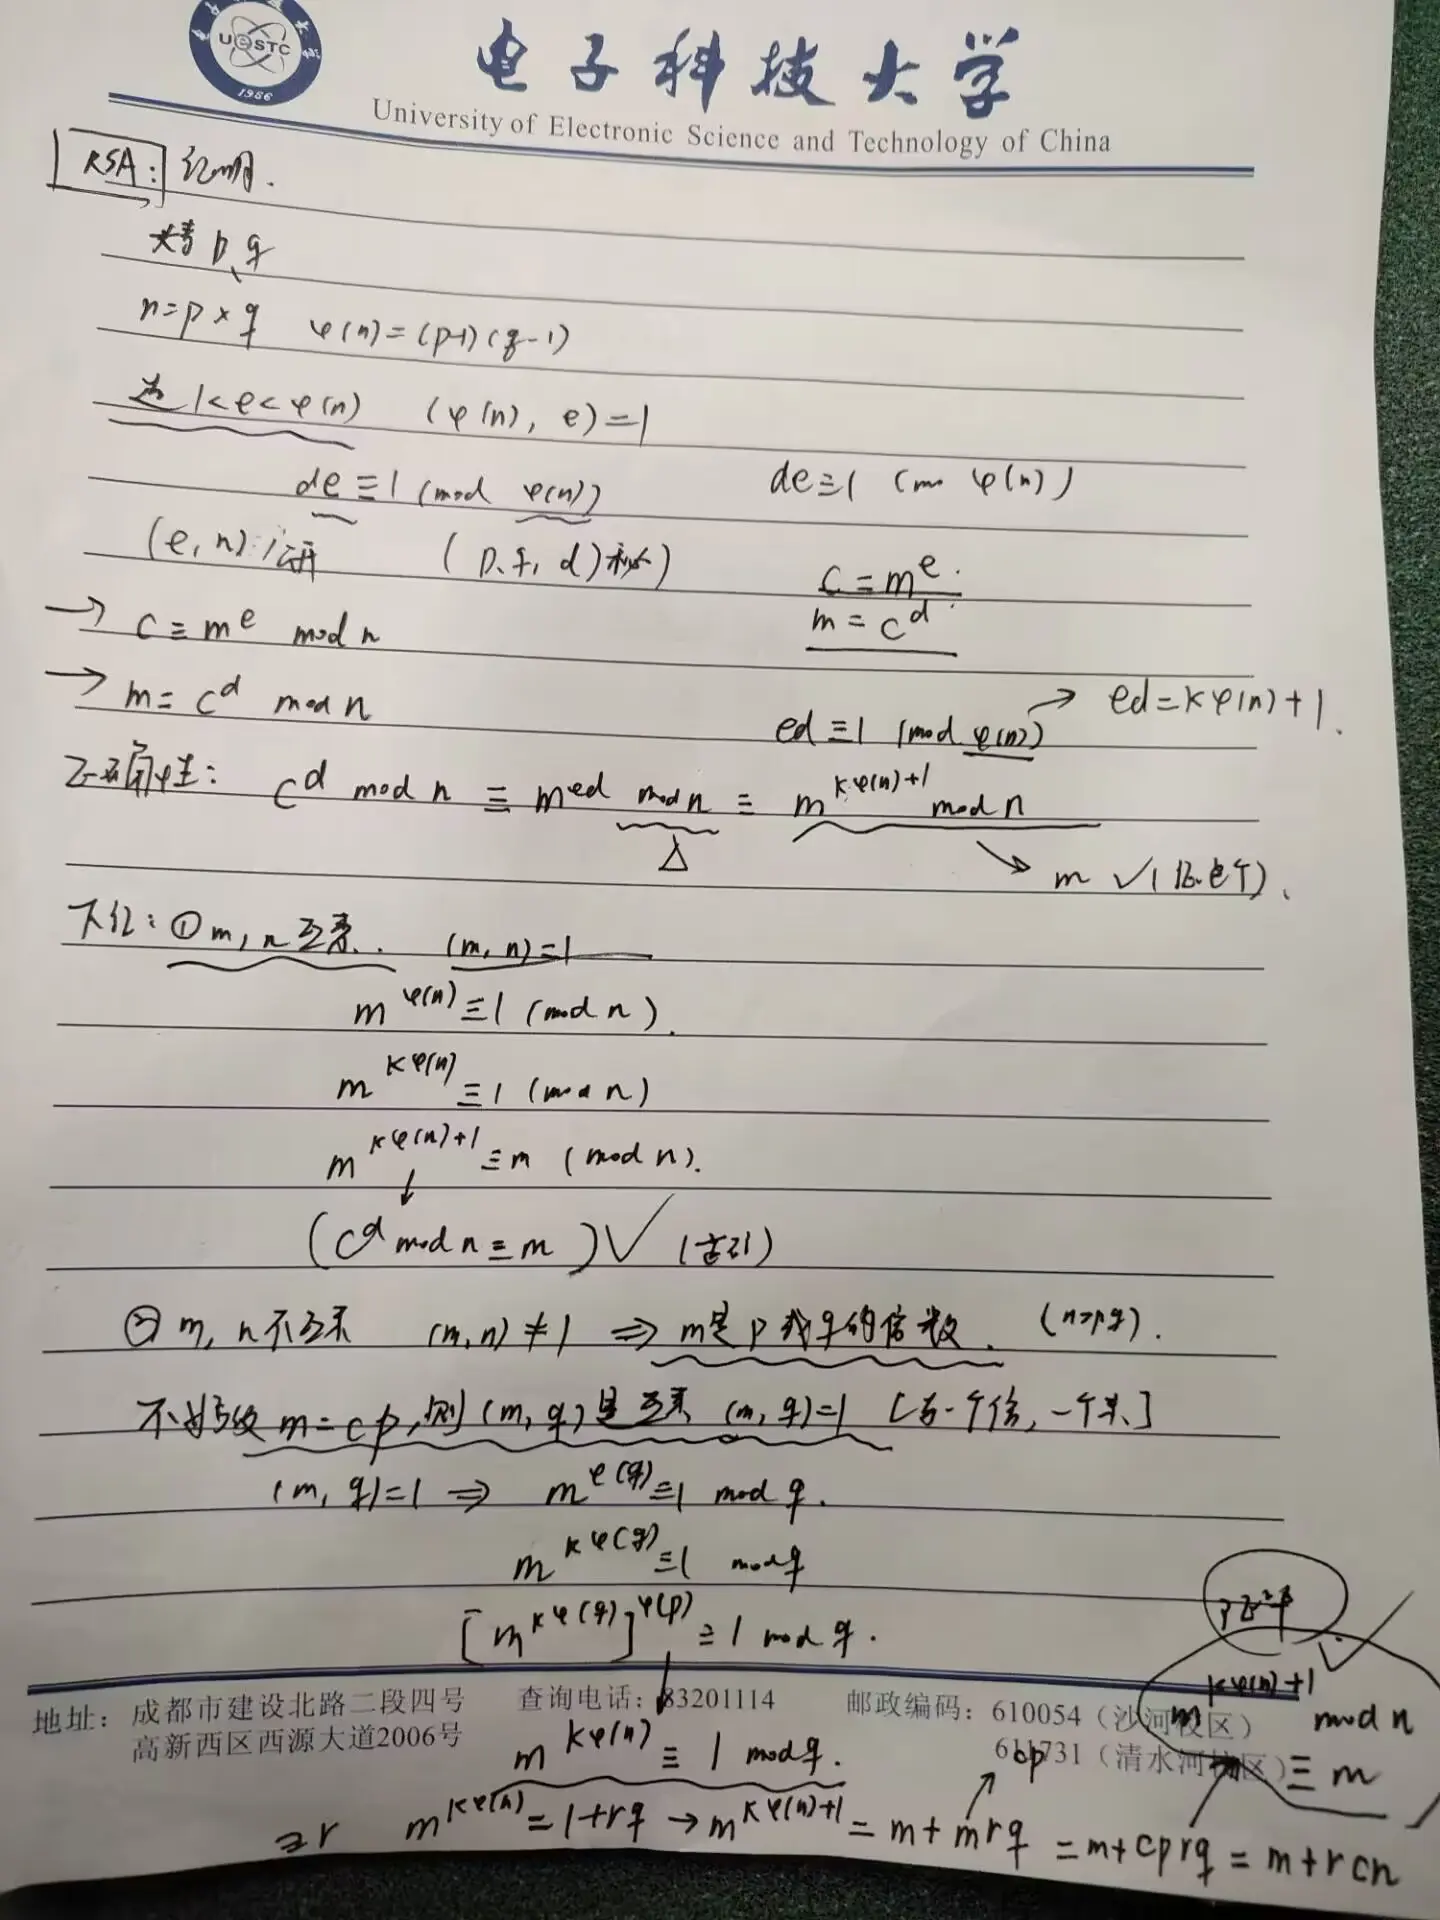 UESTC
1956
电子科技大学
University of Electronic Science and Technology of China
RSA: 证明.
大素 p、q
n=p×q φ(n)=(p-1)(q-1)
选 1<e<φ(n) (φ(n), e)=1
de≡1 (mod φ(n)) de≡1 (mo φ(n))
(e, n): 公开 (p、q, d) 私人)
C=m^e.
m=c^d
→ C≡m^e mod n
→ m=C^d mod n
ed≡1 (mod φ(n)) → ed=kφ(n)+1.
正确性: C^d mod n ≡ m^ed mod n ≡ m^kφ(n)+1 mod n
△
→ m ✓
下证: ① m, n互素. (m, n)=1
m^φ(n)≡1 (mod n).
m^kφ(n)≡1 (mod n)
m^kφ(n)+1≡m (mod n).
↓
(C^d mod n≡m) ✓
② m, n不互素 (m, n)≠1 ⇒ m是p或q的倍数. (n=pq).
不妨设 m=cp, 则(m, q)是互素 (m, q)=1 [一个倍, 一个]
(m, q)=1 ⇒ m^φ(q)≡1 mod q.
m^kφ(q)≡1 mod q
[m^kφ(q)]^φ(p)≡1 mod q.
地址: 成都市建设北路二段四号 查询电话: 83201114 邮政编码: 610054 (沙河校区)
高新西区西源大道2006号 611731 (清水河校区)
m^kφ(n)≡1 mod q.
cp
m^kφ(n)+1 mod n
≡m
∃r m^kφ(n)=1+rq → m^kφ(n)+1=m+mrq=m+cprq=m+rcn